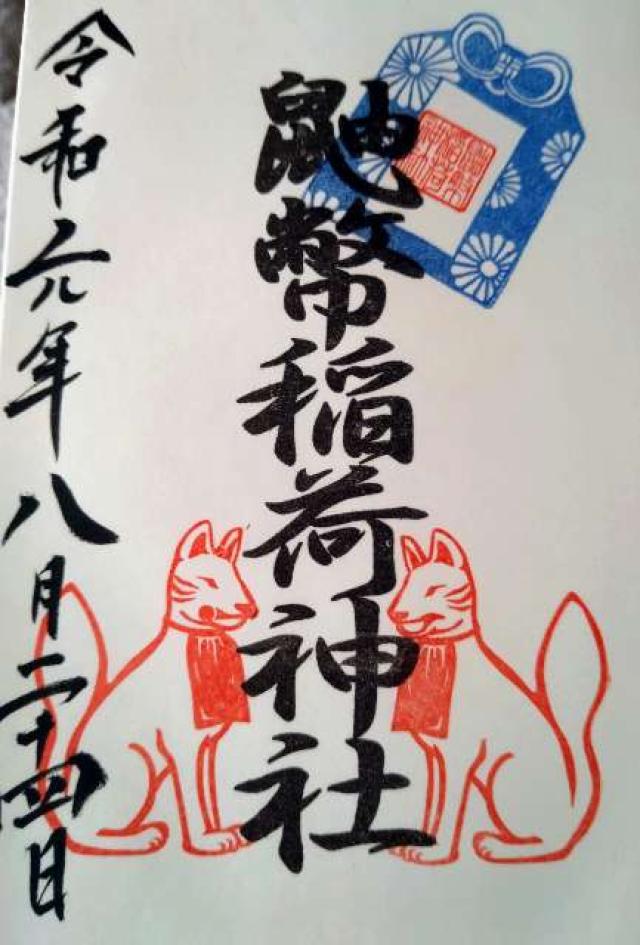 鼬幣稲荷神社
令和元年八月二十四日